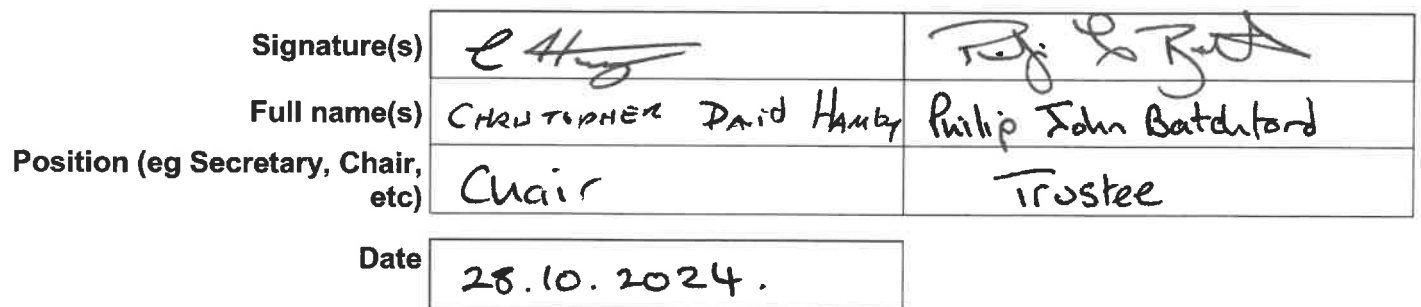 Signature(s)
Full name(s) CHRISTOPHER DAvid HAMBY Philip John Batchford
Position (eg Secretary, Chair,
etc) Chair Trustee
Date 28.10.2024.